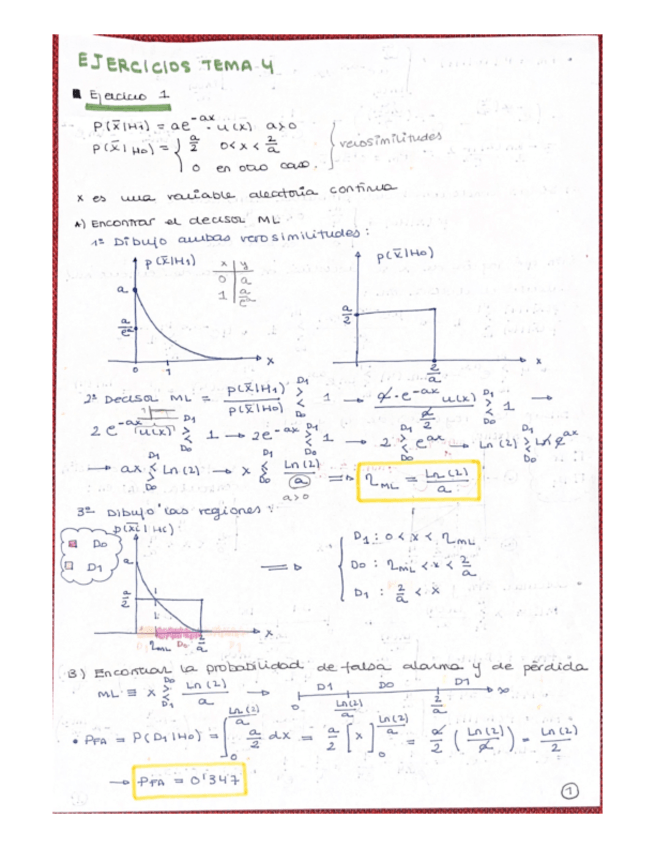 EJERCICIOS TEMA 4
Ejercicio 1
P(x̄|H1) = ae^-ax · u(x) a>0
P(x̄|H0) = { a/2 0<x<2/a
0 en otro caso.
verosimilitudes
x es una variable aleatoria continua
A) Encontrar el decisor ML
1º Dibujo ambas verosimilitudes:
p(x̄|H1) x y
0 a
1 a/e²
a
a/e²
0 1 x
p(x̄|H0)
a/2
2/a x
2º Decisor ML = p(x̄|H1) / p(x̄|H0) D1 > < D0 1 → a·e^-ax u(x) / a/2 D1 > < D0 1 →
2e^-ax u(x) D1 > < D0 1 → 2e^-ax D1 > < D0 1 → 2 D1 > < D0 e^ax → Ln(2) D1 > < D0 Ln e^ax
→ ax D1 < > D0 Ln(2) → x D1 < > D0 Ln(2)/a ⇒ η ML = Ln(2)/a
a>0
3º Dibujo las regiones:
p(x̄|Hi)
D0
D1
a
a/2
η ML D0 2/a x
D1: 0<x<η ML
D0: η ML<x<2/a
D1: 2/a < x
B) Encontrar la probabilidad de falsa alarma y de pérdida
ML ≡ x D0 > < D1 Ln(2)/a →
D1 D0 D1
0 Ln(2)/a 2/a x
• PFA = P(D1|H0) = ∫_0^{Ln(2)/a} a/2 dx = a/2 [x]_0^{Ln(2)/a} = a/2 (Ln(2)/a) = Ln(2)/2
→ PFA = 0'347
1